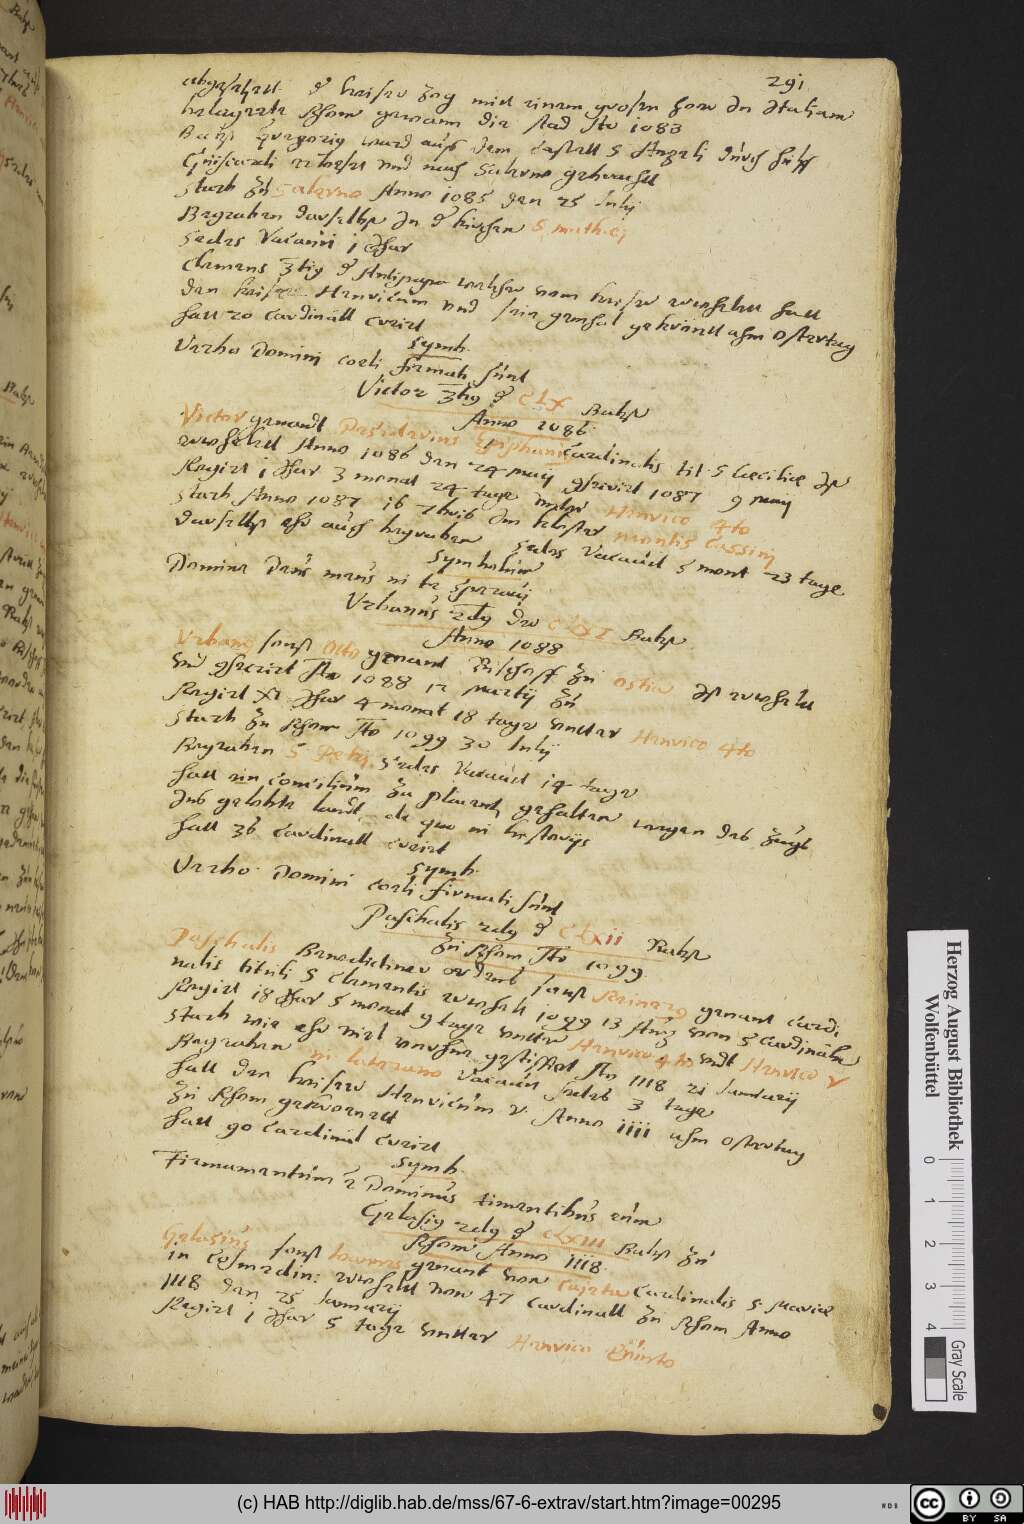 291
abgesetztt. d keiser zog mitt einem grosen heer In Italiam
belagerte Rhom gewann die stad Ao 1083
Babst Gregorig ward auss dem Castell S Angeli durch hülff
Guiscardi erlöset und nach Salerno gebracht
starb zu Salerno Anno 1085 den 25 Julij
Begraben daselbst In d kirchen S mathej
sedes Vacavit 1 Jhar
Clemens 3tig d Antipapa welcher vom keiser erwehlett hatt
den keiser Henricum und sein gemhal gekröntt ahm Ostertag
hatt 20 Cardinäll creirt
symb.
Verbo Domini coeli firmati sunt
Victor 3tig d CLX Babst
Anno 1086.
Victor genandt Desiderius Epiphanij Cardinalis tit. S Caeciliae Ist
erwehlett Anno 1086 den 24 maij gheweirt 1087 9 maij
Regirt 1 Jhar 3 monat 24 tage unter Henrico 4to
starb Anno 1087 16 7bris Im kloster montis Cassinj
daselbst ehr auch begraben sedes Vacavit 5 mont 23 tage
Symbolum
Domine Deus meus in te speravi
Urbanus 2dg der CLXI Babst
Anno 1088
Urbanus sonst Otto genant Bischoff zu Ostia Ist erwehlt
und Ao 1088 12 Martij zu
Regirt XI Jhar 4 monat 18 tage untter Henrico 4to
starb zu Rhom Ao 1099 30 Julij
Begraben S Petrj. Sedes Vacavit 14 tage
hatt ein Concilium zu placentz gehalten wegen des Zugs
Ins gelobte landt. de quo in historijs
hatt 36 Cardinäll creirt
symb.
Verbo Domini coeli firmati sunt
Paschalis 2dg d CLXii Babst
zu Rhom Ao 1099
Paschalis Benedictiner ordens sonst Reinerg genant Cardi
nalis tituli S Clementis erwehlt 1099 13 Aug von S Cardinälen
Regirt 18 Jhar 5 monat 9 tage untter Henrico 4to undt Henrico V
starb wie ehr viel unruhe gestifftet Ao 1118 21 Januarij
Begraben in laterano Vacavit sedes 3 tage
hatt den keiser Henricum V. Anno 1111 ahm Ostertag
zu Rhom gekroenett
hatt 90 Cardinäl creirt
symb.
Firmamentum e Dominus timentibus eum
Gelasig 2dg d CLXIII Babst zu
Rhom Anno 1118.
Gelasius sonst Ioannes genant von Caieta Cardinalis S. Mariae
in Cosmedin: erwehlett von 47 Cardinäll zu Rhom Anno
1118 den 25 Januarij
Regirt 1 Jhar 5 tage untter Henrico Quinto
Herzog August Bibliothek
Wolfenbüttel
0 1 2 3 4
Gray Scale
(c) HAB http://diglib.hab.de/mss/67-6-extrav/start.htm?image=00295
WDB
cc BY SA